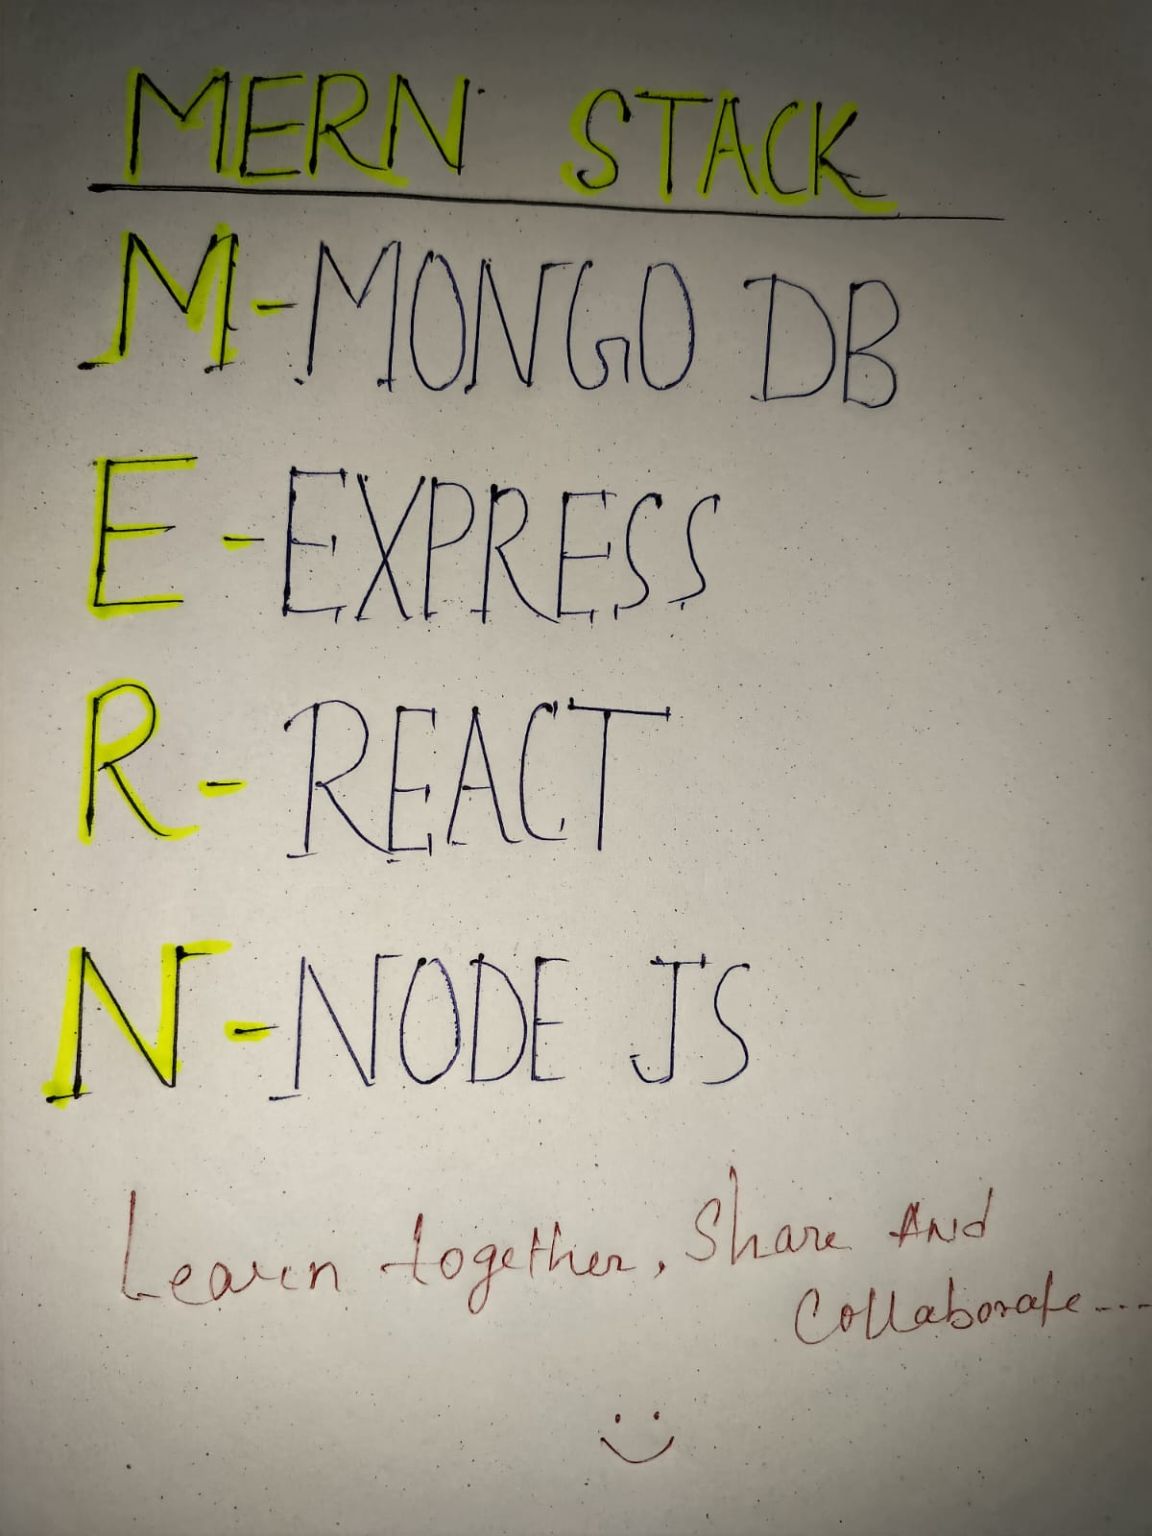 MERN STACK
M-MONGO DB
E-EXPRESS
R- REACT
N-NODE JS
Learn together, Share And
Collaborate....